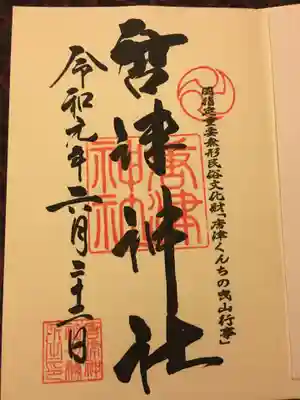 国指定重要無形民俗文化財「唐津くんちの曳山行事」
唐津神社
唐津神社
令和元年六月二十二日